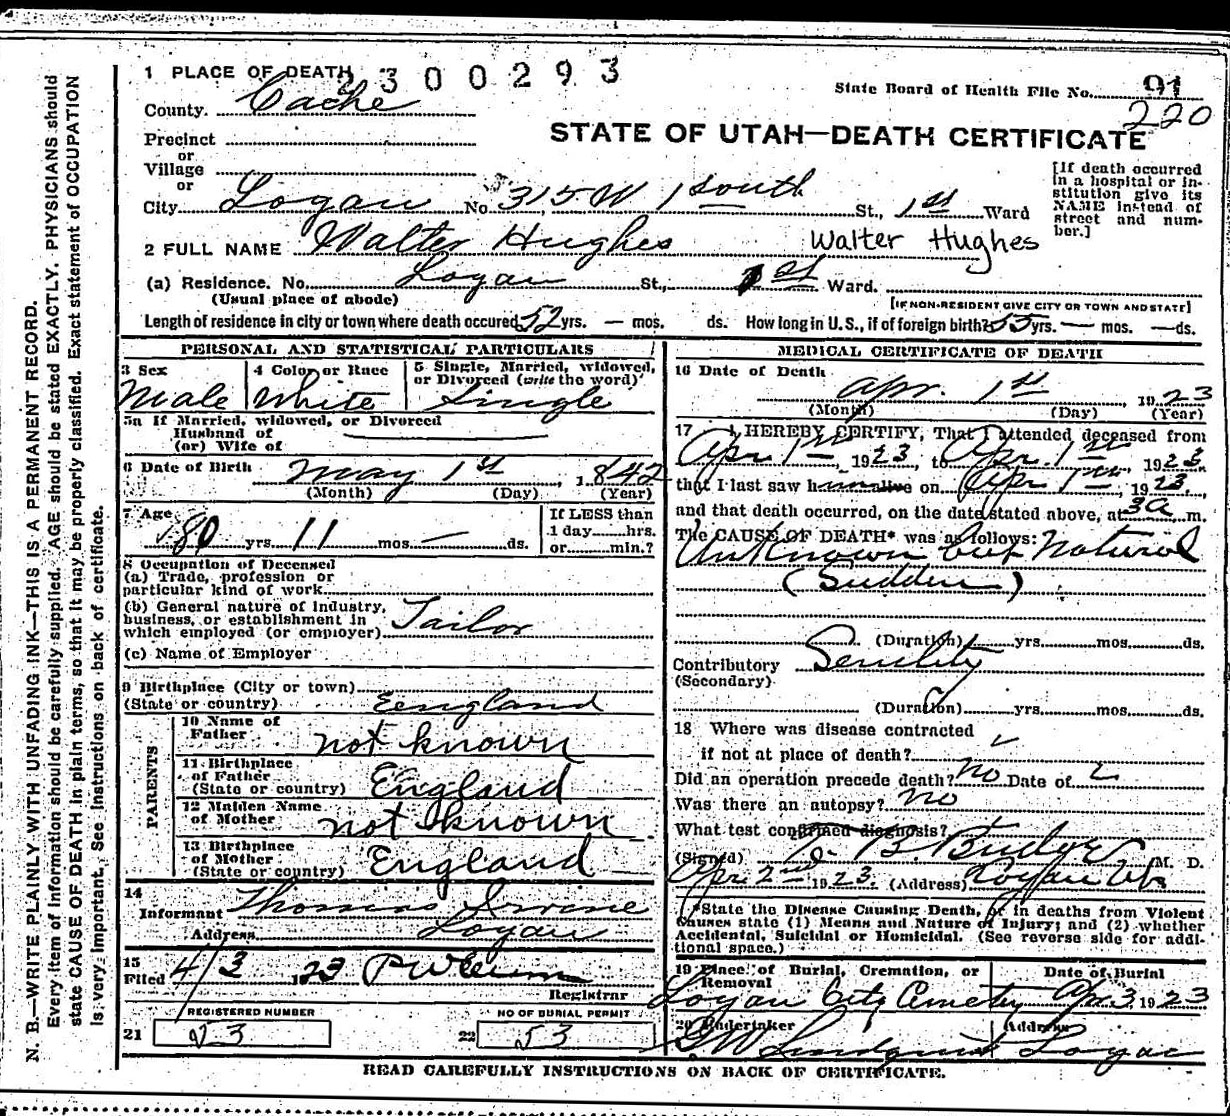 1 PLACE OF DEATH 2300293
State Board of Health File No. 91
County. Cache
220
STATE OF UTAH—DEATH CERTIFICATE
Precinct
or
Village
or
City Logan No. 315 W 1 South St., 1st Ward
[If death occurred in a hospital or institution give its NAME instead of street and number.]
2 FULL NAME Walter Hughes Walter Hughes
(a) Residence. No. Logan St., 1st Ward.
(Usual place of abode) [IF NON-RESIDENT GIVE CITY OR TOWN AND STATE]
Length of residence in city or town where death occured 52 yrs. — mos. ds. How long in U.S., if of foreign birth? 55 yrs. — mos. — ds.
PERSONAL AND STATISTICAL PARTICULARS
3 Sex
Male
4 Color or Race
White
5 Single, Married, widowed, or Divorced (write the word)
Single
5a If Married, widowed, or Divorced
Husband of
(or) Wife of
6 Date of Birth May 1st, 1842
(Month) (Day) (Year)
7 Age 80 yrs 11 mos — ds.
If LESS than
1 day hrs.
or min.?
8 Occupation of Deceased
(a) Trade, profession or
particular kind of work
(b) General nature of industry,
business, or establishment in
which employed (or employer) Tailor
(c) Name of Employer
9 Birthplace (City or town)
(State or country) Eengland
PARENTS
10 Name of
Father not known
11 Birthplace
of Father
(State or country) England
12 Maiden Name
of Mother not known
13 Birthplace
of Mother
(State or country) England
14
Informant Thomas Irvine
Address Logan
15
Filed 4/3 1923
Registrar
REGISTERED NUMBER
21 53
NO OF BURIAL PERMIT
22 53
MEDICAL CERTIFICATE OF DEATH
16 Date of Death
Apr. 1st, 1923
(Month) (Day) (Year)
17 I HEREBY CERTIFY, That I attended deceased from
Apr 1st, 1923, to Apr. 1st, 1923
that I last saw h alive on Apr 1st, 1923,
and that death occurred, on the date stated above, at 3 a m.
The CAUSE OF DEATH* was as follows:
Unknown but Natural
(Sudden)
(Duration) yrs. mos. ds.
Contributory Senility
(Secondary)
(Duration) yrs. mos. ds.
18 Where was disease contracted
if not at place of death?
Did an operation precede death? no Date of
Was there an autopsy? no
What test confirmed diagnosis?
(Signed) B. Budge M. D.
Apr 2nd 1923. (Address) Logan Ut
*State the Disease Causing Death, or in deaths from Violent
Causes state (1) Means and Nature of Injury; and (2) whether
Accidental, Suicidal or Homicidal. (See reverse side for additional space.)
19 Place of Burial, Cremation, or Removal
Logan City Cemetery
Date of Burial
Apr. 3, 1923
20 Undertaker
Lindquist
Address
Logan
READ CAREFULLY INSTRUCTIONS ON BACK OF CERTIFICATE.
N. B.—WRITE PLAINLY WITH UNFADING INK—THIS IS A PERMANENT RECORD.
Every item of information should be carefully supplied. AGE should be stated EXACTLY. PHYSICIANS should
state CAUSE OF DEATH in plain terms, so that it may be properly classified. Exact statement of OCCUPATION
is very important. See instructions on back of certificate.